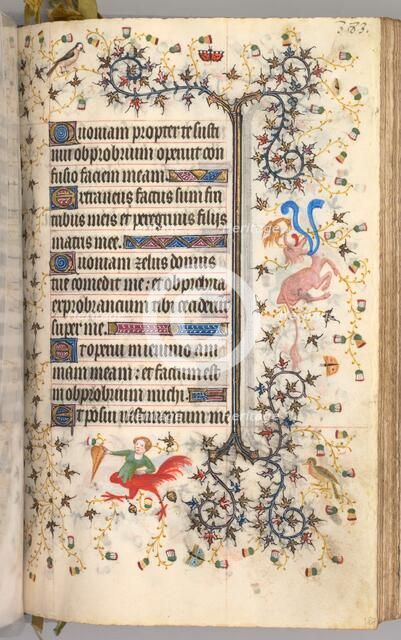 383.
Quoniam propter te susti
nui obprobrium operuit con
fusio faciem meam.
Extraneus factus sum fra
tribus meis et peregrinus filiis
matris mee.
Quoniam zelus domus
tue comedit me: et obprobria
exprobrancium tibi ceciderunt
super me.
Et operui in ieiunio ani
mam meam: et factum est
in obprobrium michi.
Et posui vestimentum me
heritage